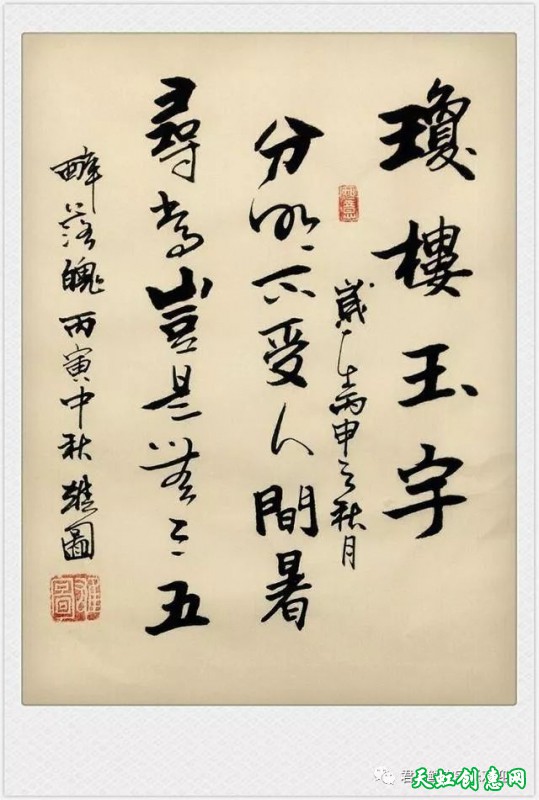 瓊樓玉宇
歲在丙申之秋月
分明不受人間暑
尋常豈是無三五
醉落魄 丙寅中秋 雄圖
君
天虹创意网